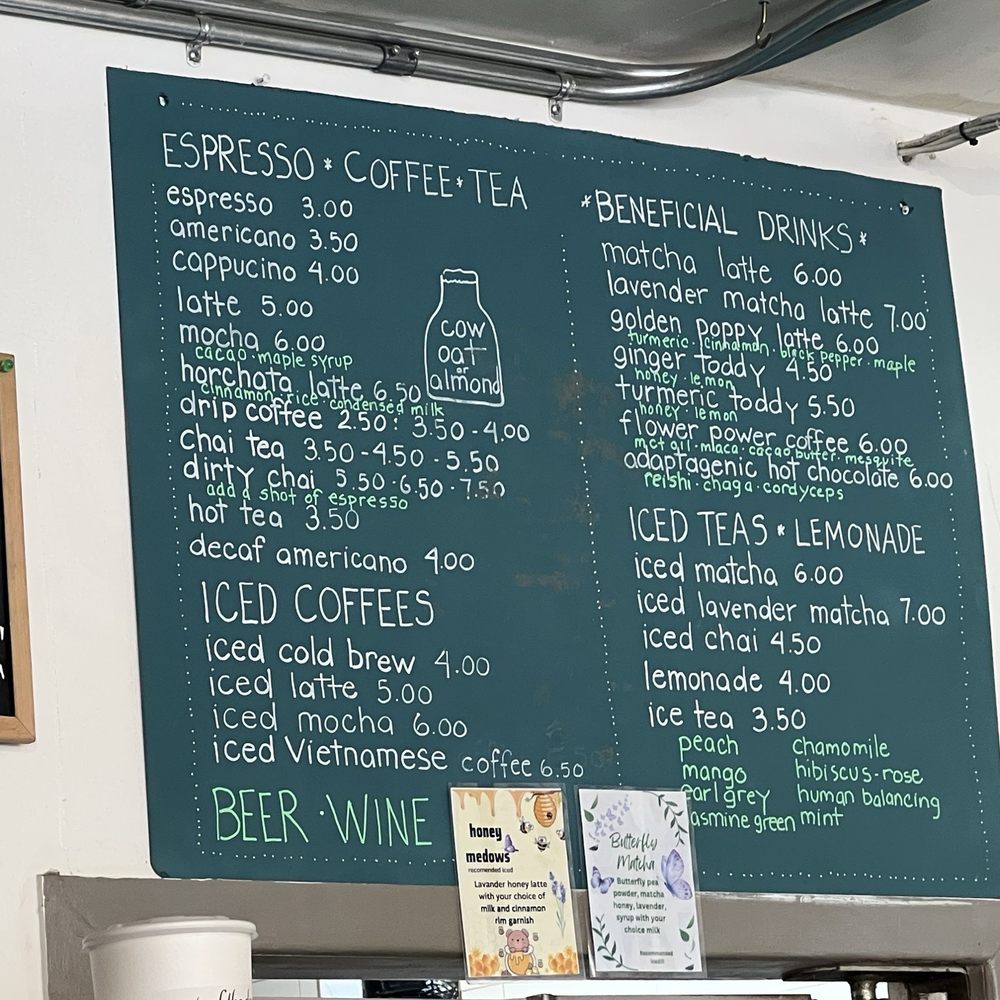 ESPRESSO * COFFEE * TEA
espresso 3.00
americano 3.50
cappucino 4.00
latte 5.00
mocha 6.00
cacao · maple syrup
horchata latte 6.50
cinnamon · rice · condensed milk
drip coffee 2.50 : 3.50 - 4.00
chai tea 3.50 - 4.50 - 5.50
dirty chai 5.50 · 6.50 · 7.50
add a shot of espresso
hot tea 3.50
decaf americano 4.00
cow
oat
or
almond
ICED COFFEES
iced cold brew 4.00
iced latte 5.00
iced mocha 6.00
iced Vietnamese coffee 6.50
BEER · WINE
*BENEFICIAL DRINKS*
matcha latte 6.00
lavender matcha latte 7.00
golden poppy latte 6.00
turmeric · cinnamon · black pepper · maple
ginger toddy 4.50
honey · lemon
turmeric toddy 5.50
honey · lemon
flower power coffee 6.00
mct oil · maca · cacao butter · mesquite
adaptagenic hot chocolate 6.00
reishi · chaga · cordyceps
ICED TEAS * LEMONADE
iced matcha 6.00
iced lavender matcha 7.00
iced chai 4.50
lemonade 4.00
ice tea 3.50
peach chamomile
mango hibiscus - rose
earl grey human balancing
jasmine green mint
honey
medows
recomended iced
Lavander honey latte
with your choice of
milk and cinnamon
rim garnish
Butterfly
Matcha
Butterfly pea
powder, matcha
honey, lavender,
syrup with your
choice milk